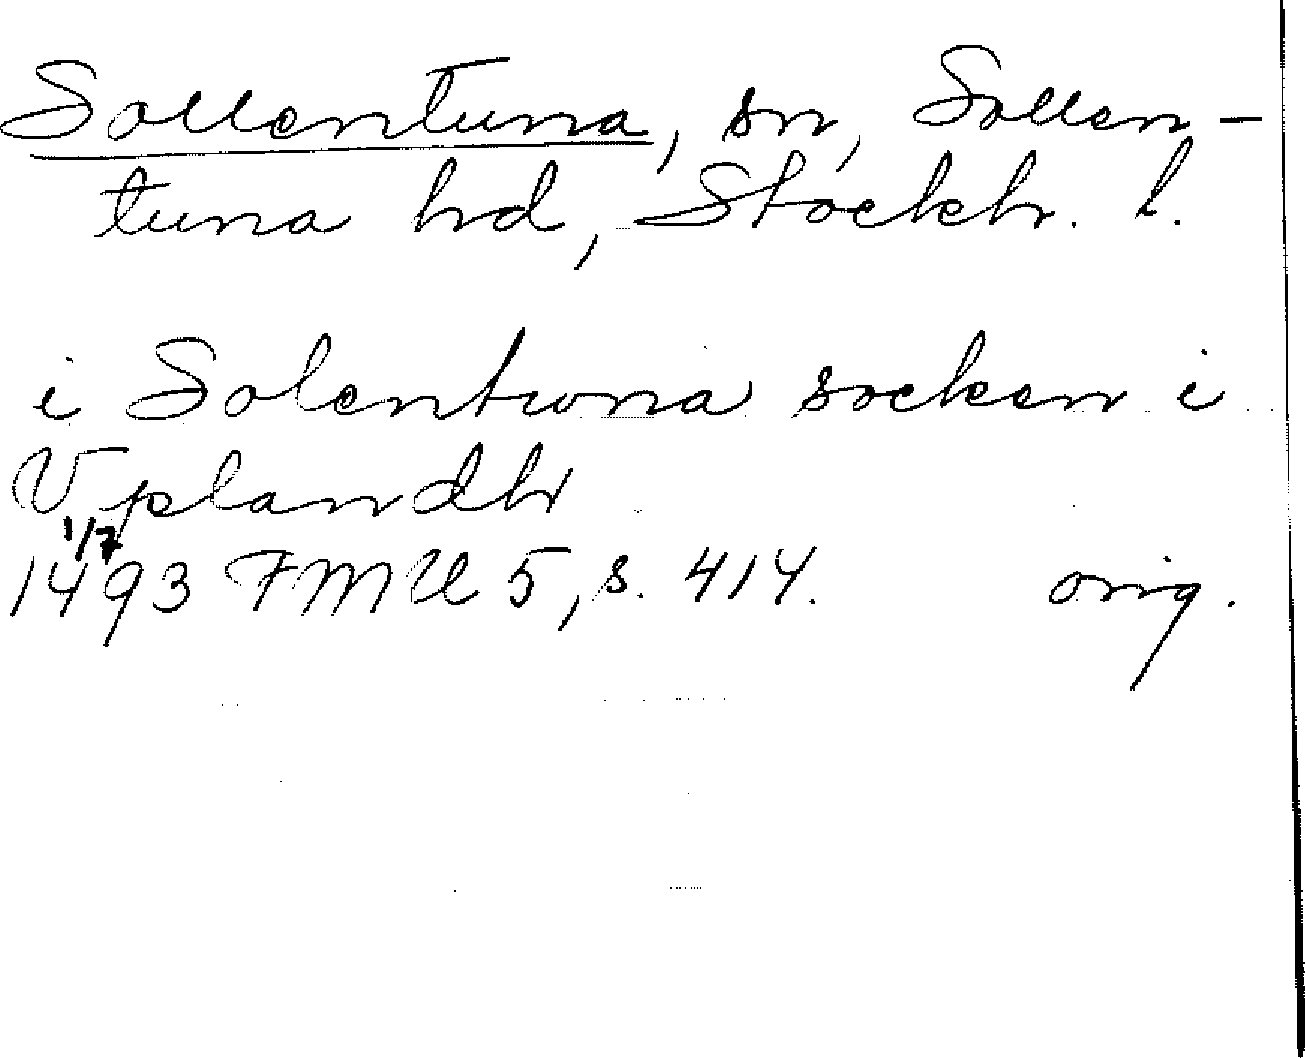 Sollentuna, sn, Sollen-
tuna hd, Stockh. l.
i Solentwna socken i
Vplandh
1/7
1493 FMU 5, s. 414. orig.